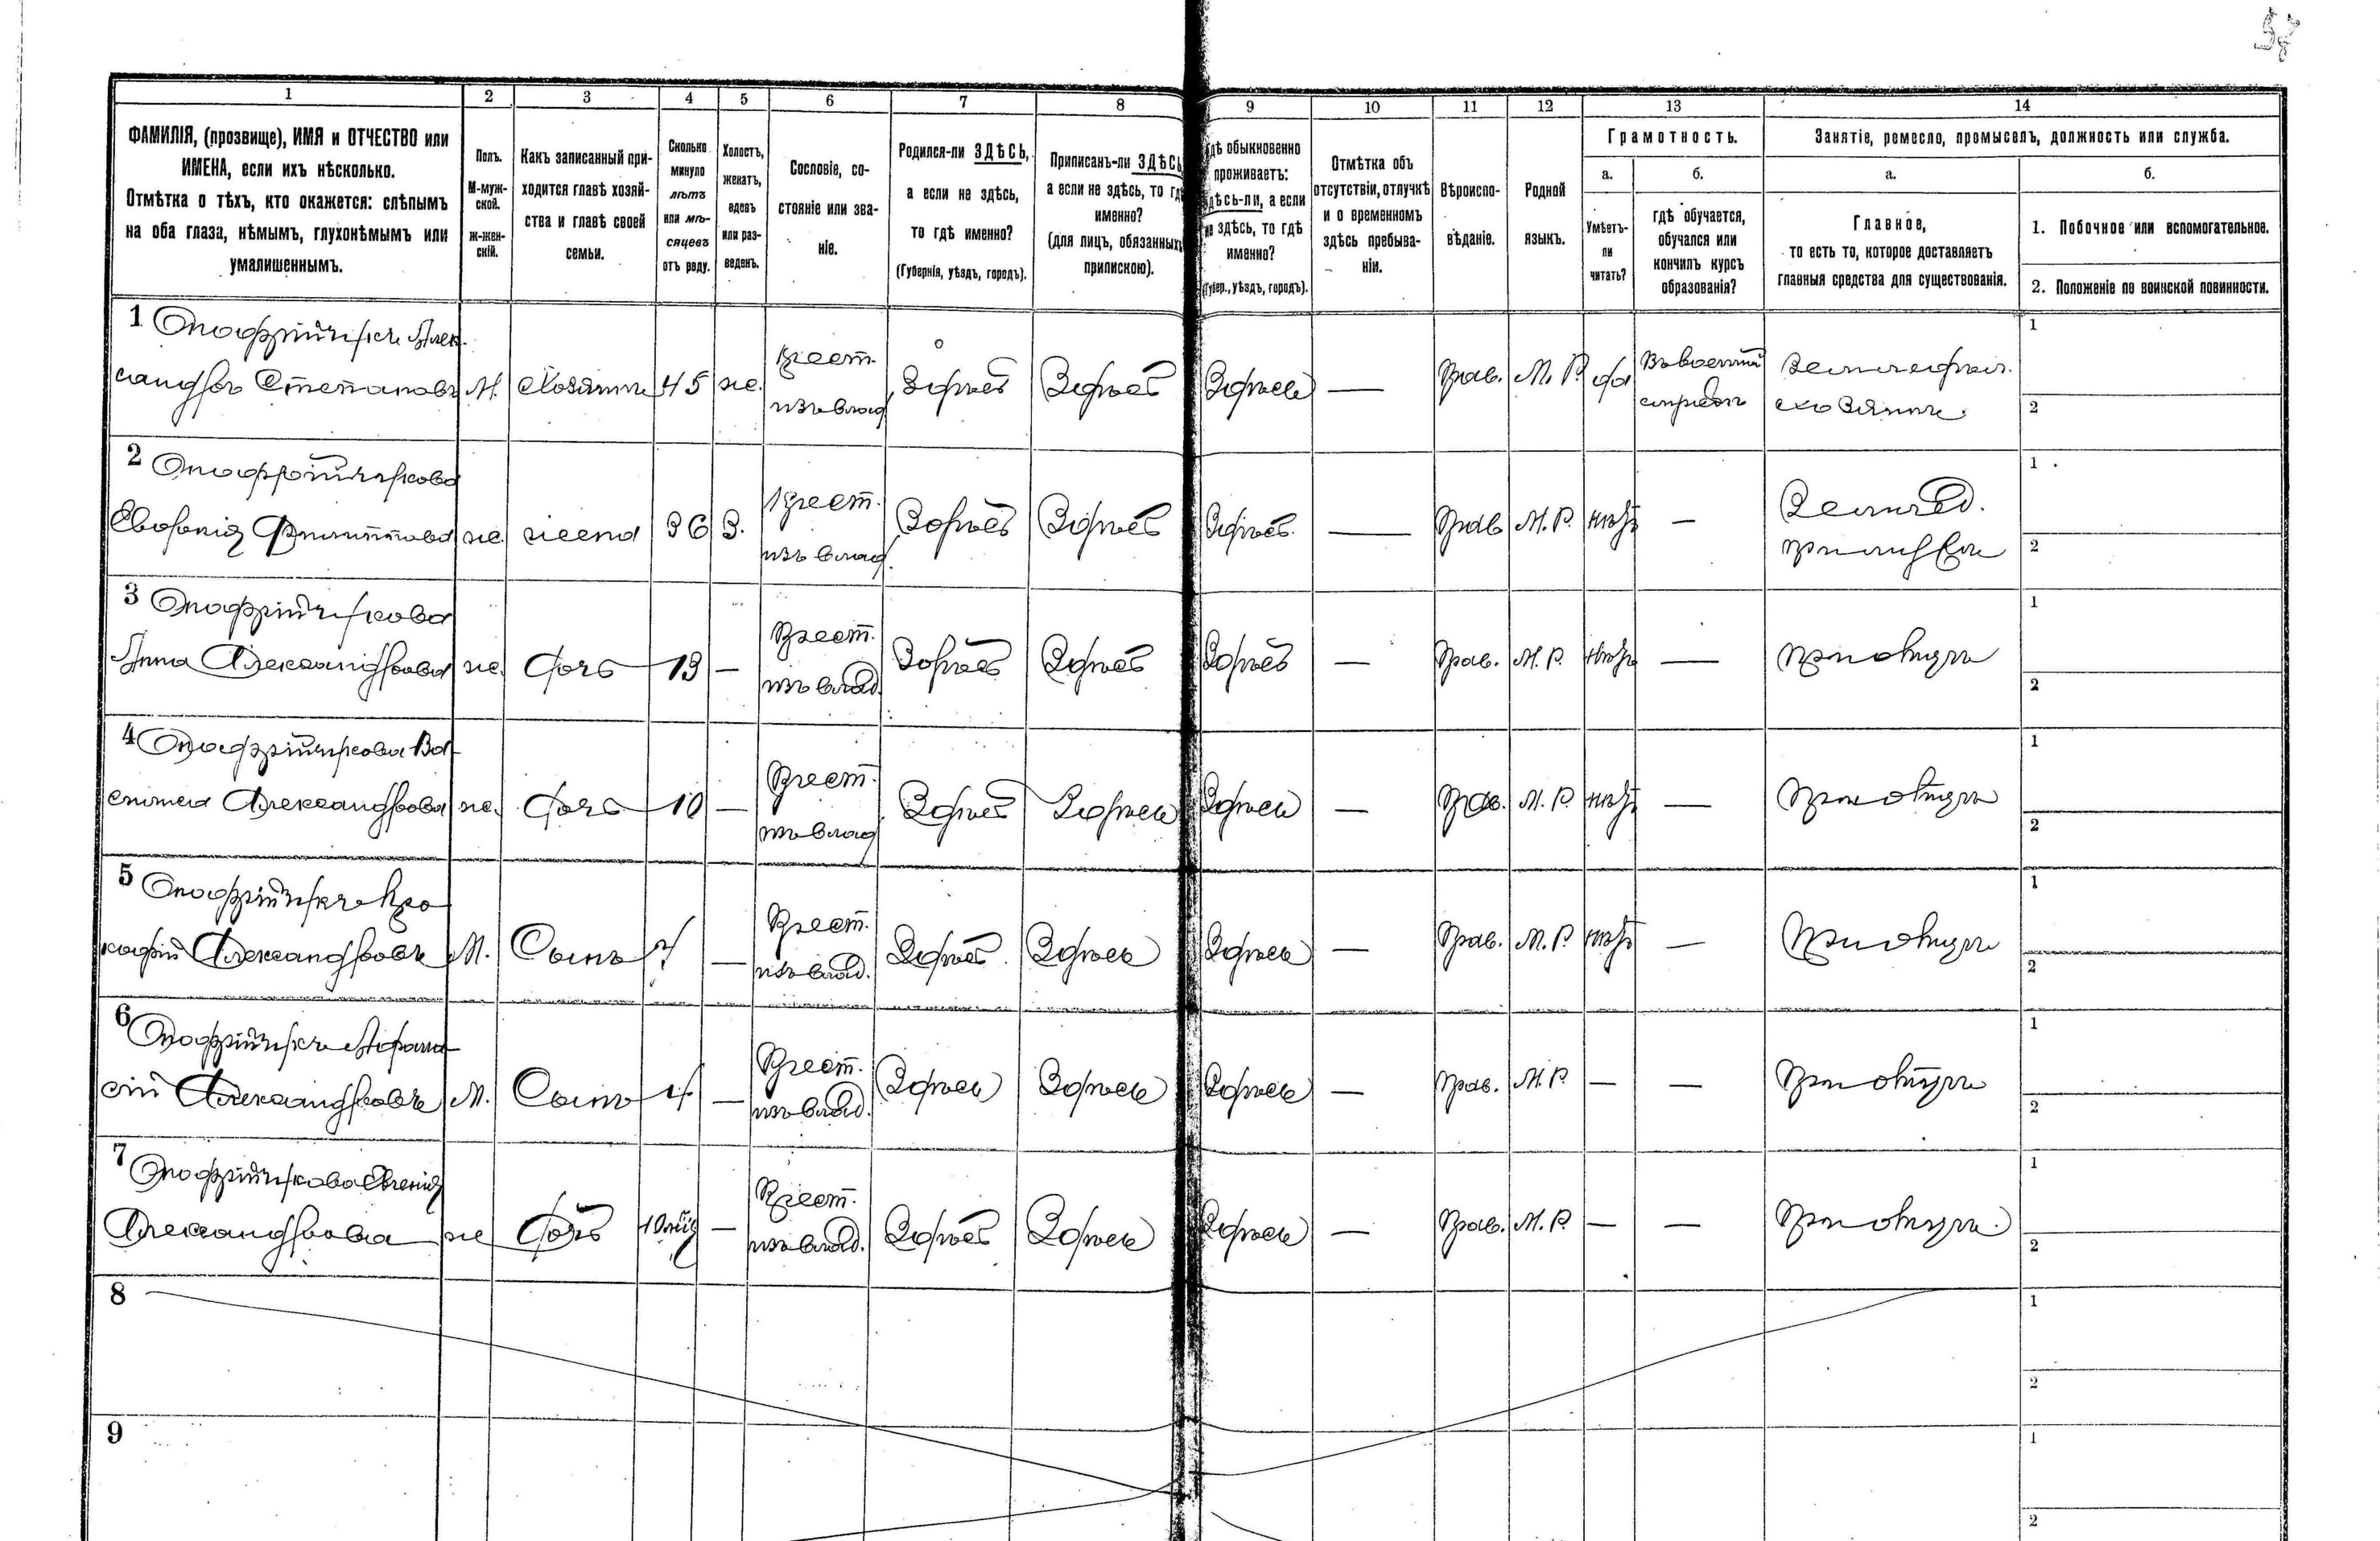 57
1
2
3
4
5
6
7
8
9
10
11
12
13
14
ФАМИЛІЯ, (прозвище), ИМЯ и ОТЧЕСТВО или
ИМЕНА, если ихъ нѣсколько.
Отмѣтка о тѣхъ, кто окажется: слѣпымъ
на оба глаза, нѣмымъ, глухонѣмымъ или
умалишеннымъ.
Полъ.
М-муж-
ской.
Ж-жен-
скій.
Какъ записанный при-
ходится главѣ хозяй-
ства и главѣ своей
семьи.
Сколько
минуло
лѣтъ
или мѣ-
сяцевъ
отъ роду.
Холостъ,
женатъ,
вдовъ
или раз-
веденъ.
Сословіе, со-
стояніе или зва-
ніе.
Родился-ли ЗДѢСЬ,
а если не здѣсь,
то гдѣ именно?
(Губернія, уѣздъ, городъ).
Приписанъ-ли ЗДѢСЬ
а если не здѣсь, то гдѣ
именно?
(для лицъ, обязанныхъ
припискою).
гдѣ обыкновенно
проживаетъ:
здѣсь-ли, а если
не здѣсь, то гдѣ
именно?
(Губер., уѣздъ, городъ).
Отмѣтка объ
отсутствіи, отлучкѣ
и о временномъ
здѣсь пребыва-
ніи.
Вѣроиспо-
вѣданіе.
Родной
языкъ.
Грамотность.
а.
Умѣетъ-
ли
читать?
б.
гдѣ обучается,
обучался или
кончилъ курсъ
образованія?
Занятіе, ремесло, промыселъ, должность или служба.
а.
Главное,
то есть то, которое доставляетъ
главныя средства для существованія.
б.
1. Побочное или вспомогательное.
2. Положеніе по воинской повинности.
1 Алек-
сандръ Степановъ М. Хозяинъ 45 ж. Крест. изъ влад. Здѣсь Здѣсь Здѣсь — Прав. М. Р. да Въ военной Земледѣл. хозяинъ 1 2
2
Филиппова ж. жена 36 З. Крест. изъ влад. Здѣсь Здѣсь Здѣсь — Прав. М. Р. нѣтъ — Землед. 1 2
3
Анна Александрова ж. дочь 13 — Крест. изъ влад. Здѣсь Здѣсь Здѣсь — Прав. М. Р. нѣтъ — при отцѣ 1 2
4 Ва-
силиса Александрова ж. дочь 10 — Крест. изъ влад. Здѣсь Здѣсь Здѣсь — Прав. М. Р. нѣтъ — при отцѣ 1 2
5 Про-
кофій Александровъ М. Сынъ 7 — Крест. изъ влад. Здѣсь Здѣсь Здѣсь — Прав. М. Р. нѣтъ — при отцѣ 1 2
6 Афана-
сій Александровъ М. Сынъ 4 — Крест. изъ влад. Здѣсь Здѣсь Здѣсь — Прав. М. Р. — — при отцѣ 1 2
7 Евгенія
Александрова ж. дочь — Крест. изъ влад. Здѣсь Здѣсь Здѣсь — Прав. М. Р. — — при отцѣ 1 2
8 1 2
9 1 2